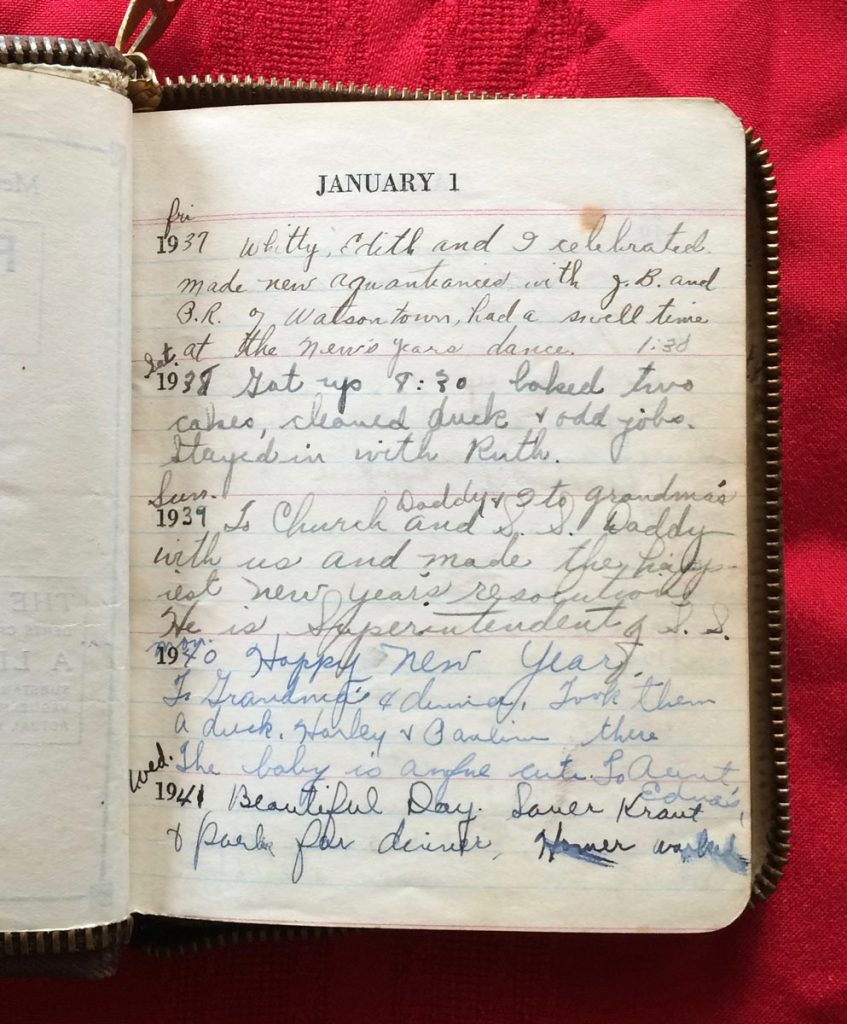 JANUARY 1
Fri
1937 Whitty, Edith and I celebrated.
made new aquantiances with J.B. and
B.R. of Watsontown, had a swell time
at the New's years dance. 1:30
Sat.
1938 Got up 8:30 baked two
cakes, cleaned duck & odd jobs.
Stayed in with Ruth.
Sun. Daddy & I to grandma's
1939 To Church and S. S. Daddy
with us and made the happ-
iest new year's resolution
He is Superintendent of S. S.
mon.
1940 Happy New Year,
To Grandma's & dinner. Took them
a duck. Harley & Pauline there
The baby is awfue cute. To Aunt
Edna's,
Wed.
1941 Beautiful Day. Sauer Kraut
& pork for dinner, Homer worked